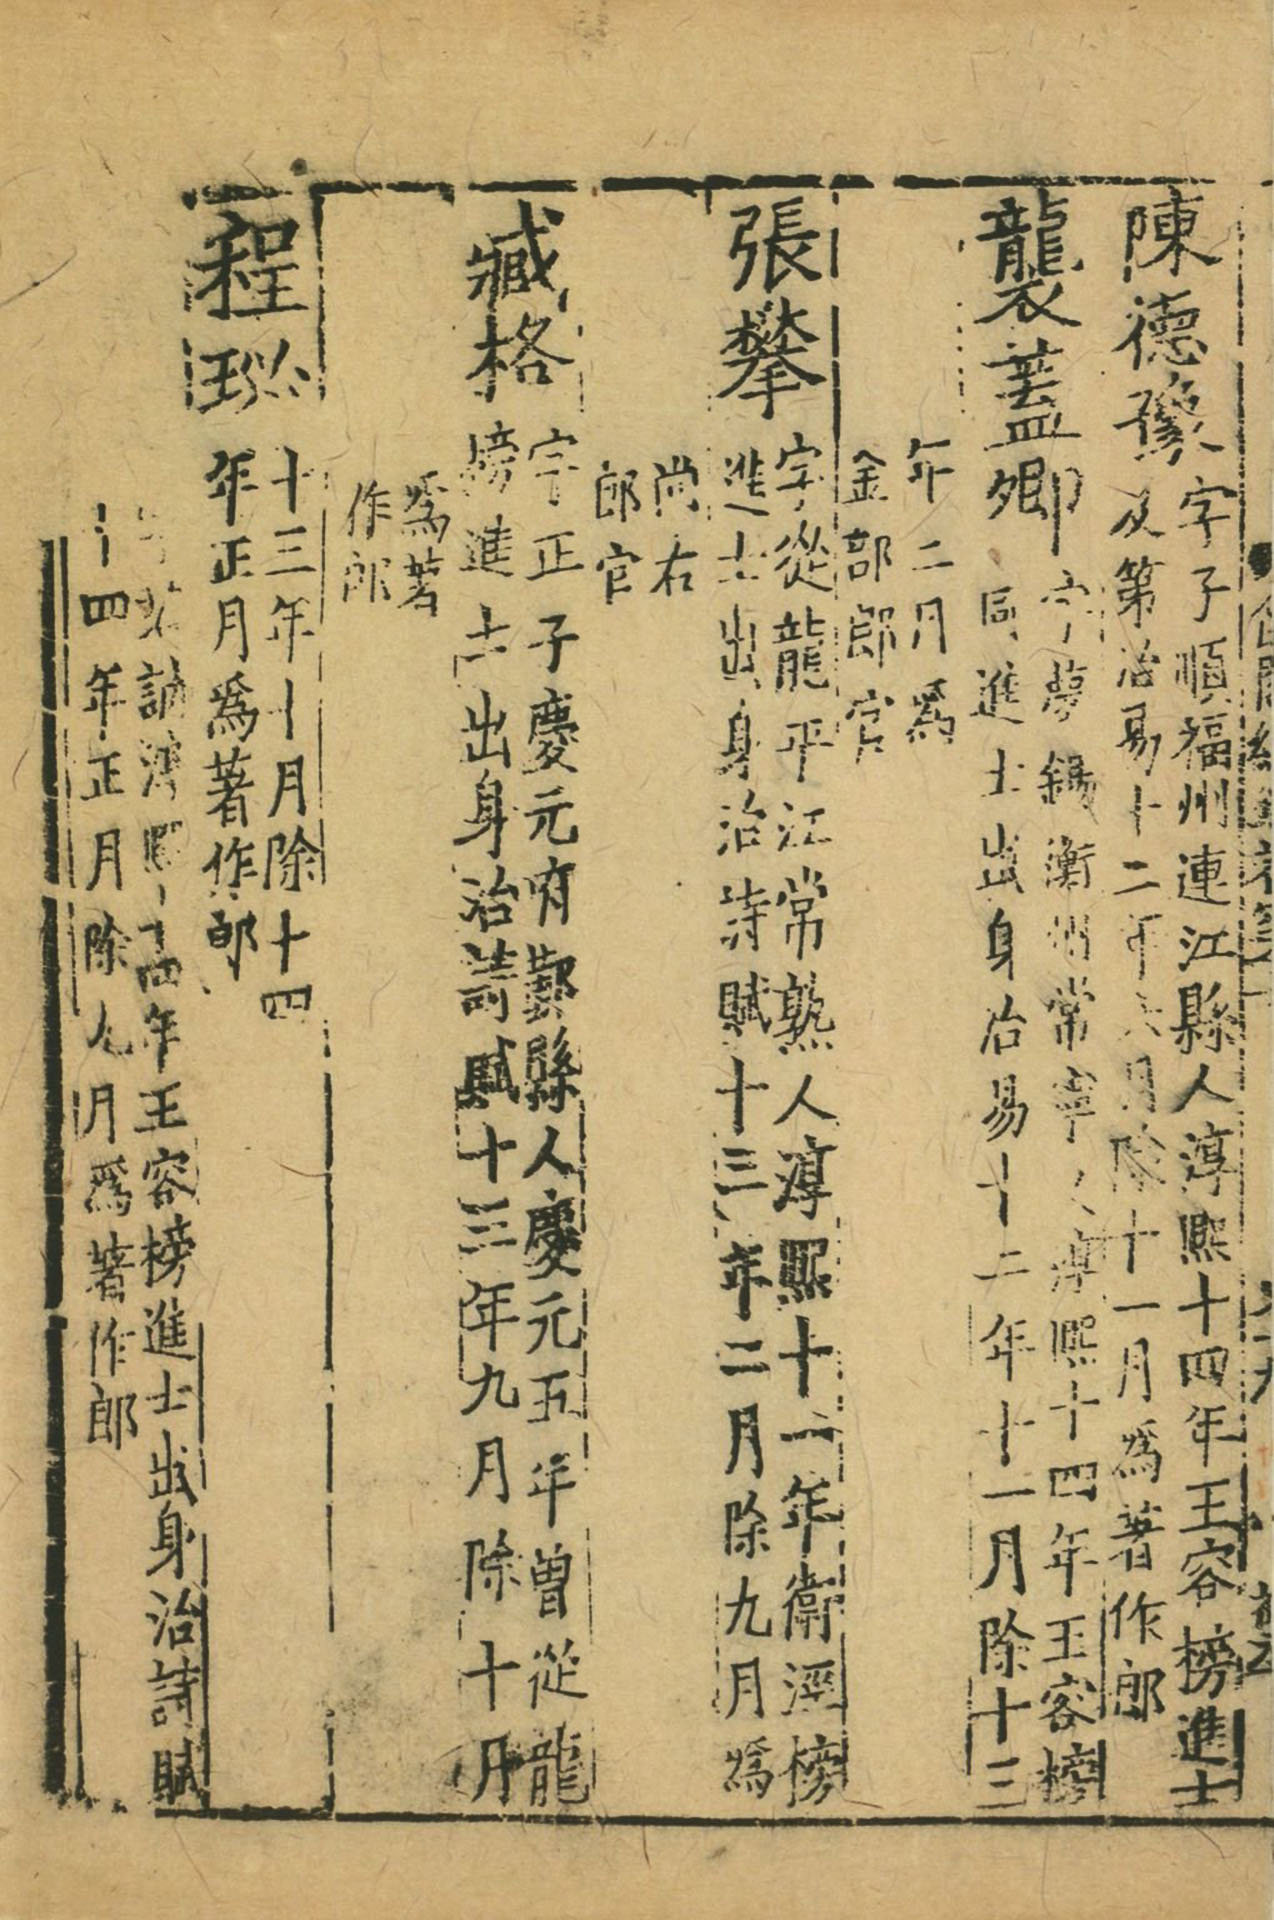 陳德豫字子順福州連江縣人淳熙十四年王容榜進士
及第治易十二年六月除十一月爲著作郎
襲蓋卿字夢錫衡州常寧人淳熙十四年王容榜
同進士出身治易十二年十一月除十三
年二月爲
金部郎官
張攀字從龍平江常熟人淳熙十一年衛涇榜
進士出身治詩賦十三年二月除九月爲
尚右
郎官
臧格字正子慶元府鄞縣人慶元五年曾從龍
榜進士出身治詩賦十三年九月除十月
爲著
作郎
程珌十三年十月除十四
年正月爲著作郎
年王容榜進士出身治詩賦
十四年正月除九月爲著作郎